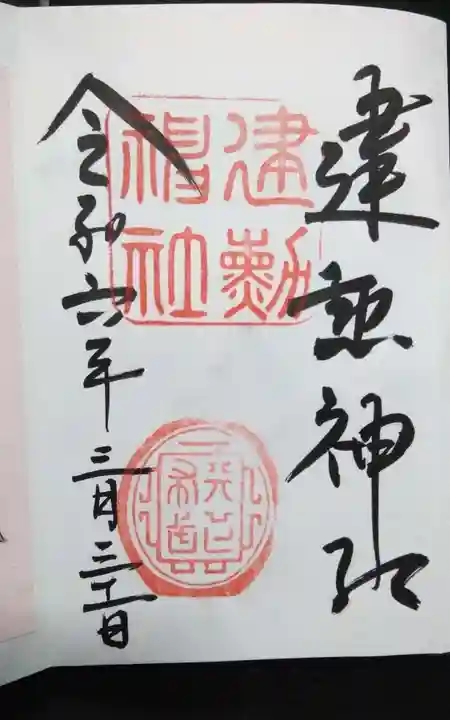 建勲神社
建勲
神社
令和六年三月三十一日